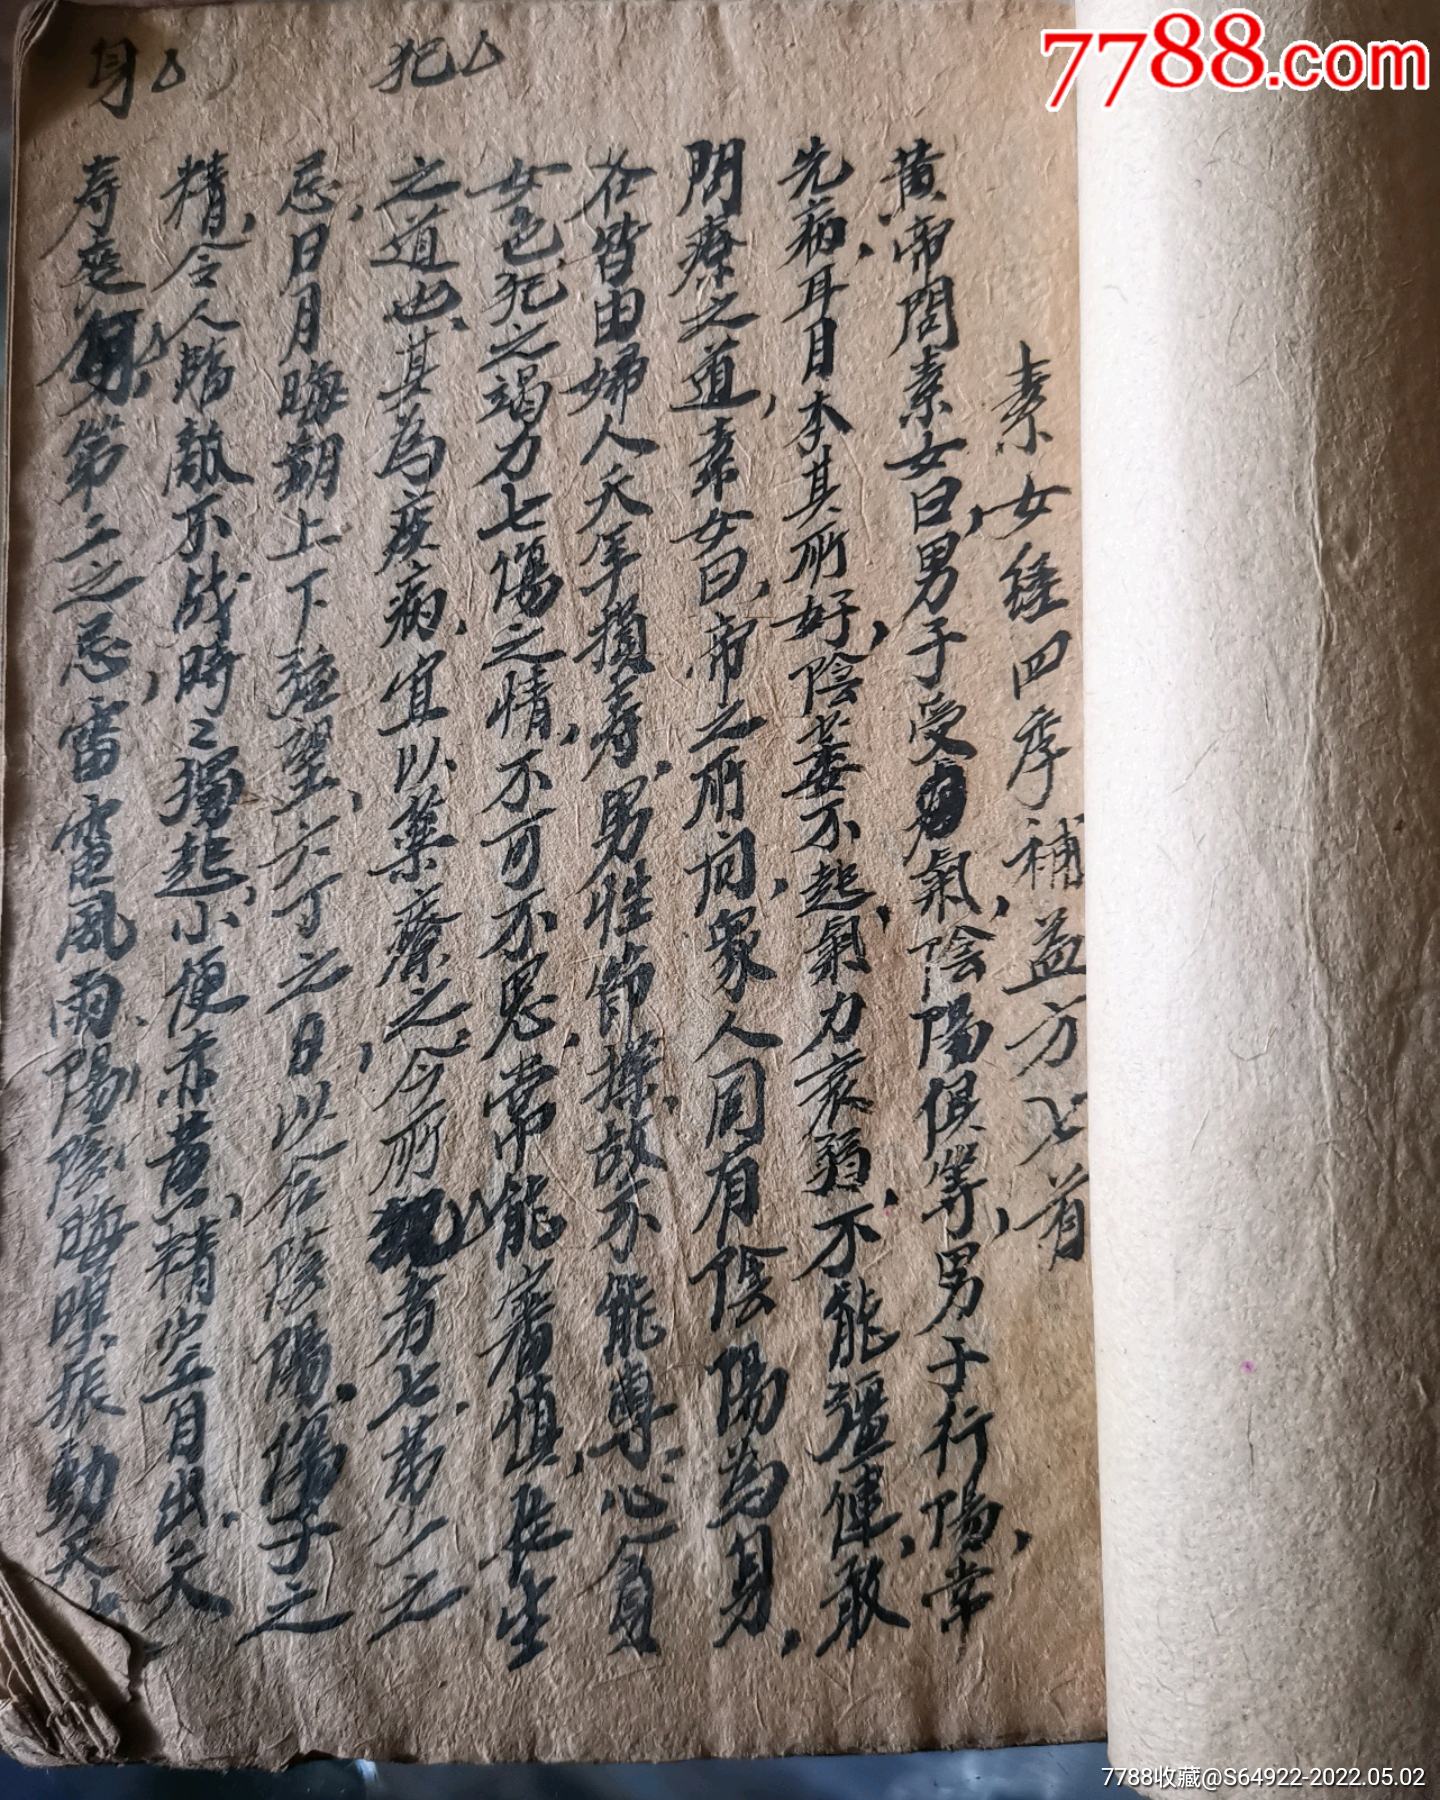 7788.com
犯
身
素女經四季補益方七首
黃帝問素女曰男子受氣陰陽俱等男子行陽常
先病耳目本其所好陰萎不起氣力衰弱不能彊健敢
問療之道素女曰帝之所问眾人同有陰陽為身
在皆由婦人夭年損壽男性節操故不能專心貪
女色犯之竭力七傷之情不可不思常能審慎長生
之道也其為疾病宜以藥療之今所者七第一之
忌日月晦朔上下弦望六丁之日以合陰陽傷子之
精令人臨敵不战時々獨起小便赤黃精空自出夭
寿第二之忌雷電風雨陽陰晦暝振動天
7788收藏@S64922-2022.05.02